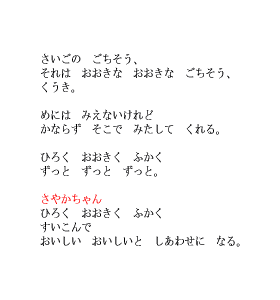 さいごの　ごちそう、
それは　おおきな　おおきな　ごちそう、
くうき。
めには　みえないけれど
かならず　そこで　みたして　くれる。
ひろく　おおきく　ふかく
ずっと　ずっと　ずっと。
さやかちゃん
ひろく　おおきく　ふかく
すいこんで
おいしい　おいしいと　しあわせに　なる。